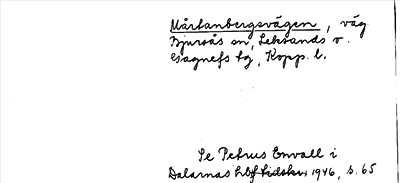 Mårtanbergsvägen, väg
Bjursås sn, Leksands o.
Gagnefs tg, Kopp. l.
Se Petrus Envall i
Dalarnas hbf tidskr 1946, s. 65